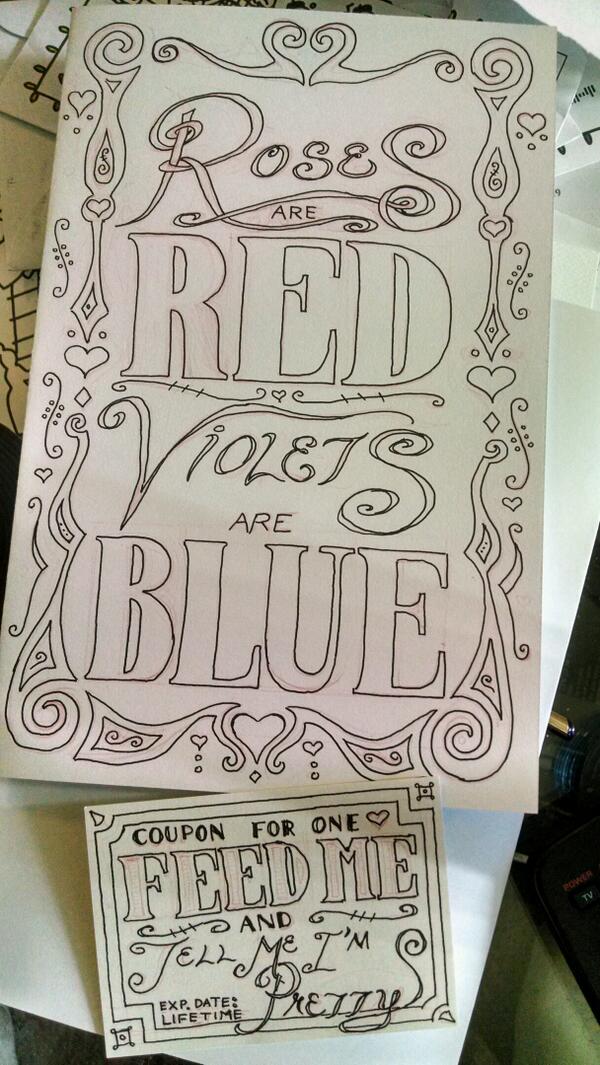 Roses
ARE
RED
Violets
ARE
BLUE
COUPON FOR ONE
FEED ME
AND
Tell Me I'm
Pretty
EXP. DATE:
LIFETIME
POWER
TV